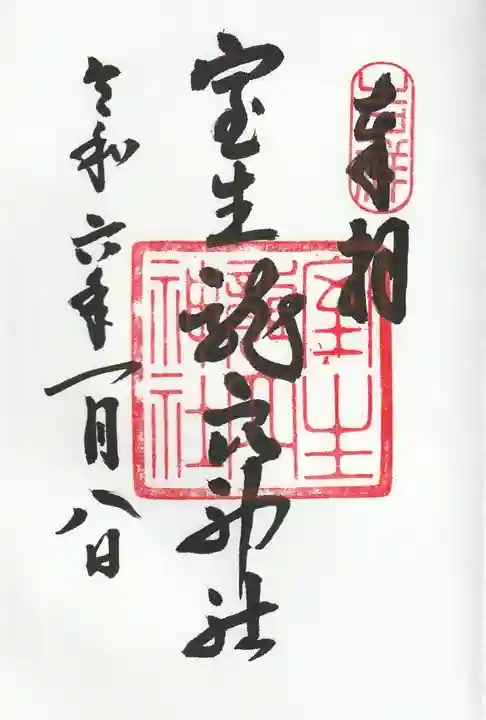 奉拝
室生龍穴神社
令和六年一月八日
室生
龍穴
神社